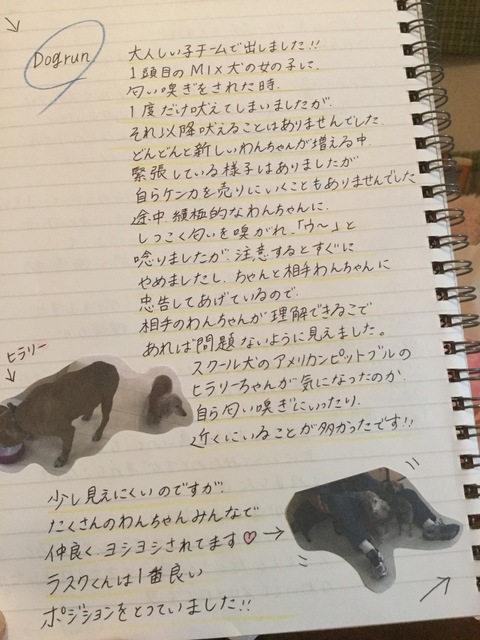 Dogrun
大人しい子チームで出しました!!
1頭目のMIX犬の女の子に、
匂い嗅ぎをされた時、
1度だけ吠えてしまいましたが、
それ以降吠えることはありませんでした。
どんどんと新しいわんちゃんが増える中、
緊張している様子はありましたが
自らケンカを売りにいくこともありませんでした
途中、積極的なわんちゃんに、
しつこく匂いを嗅がれ、「ウ〜」と
唸りましたが、注意するとすぐに
やめましたし、ちゃんと相手わんちゃんに
忠告してあげているので、
相手のわんちゃんが理解できるこで
あれば問題ないように見えました。
ヒラリー
スクール犬のアメリカンピットブルの
ヒラリーちゃんが気になったのか、
自ら匂い嗅ぎにいったり、
近くにいることが多かったです!!
少し見えにくいのですが、
たくさんのわんちゃんみんなで
仲良く、ヨシヨシされてます♡→
ラスクくんは1番良い
ポジションをとっていました!!